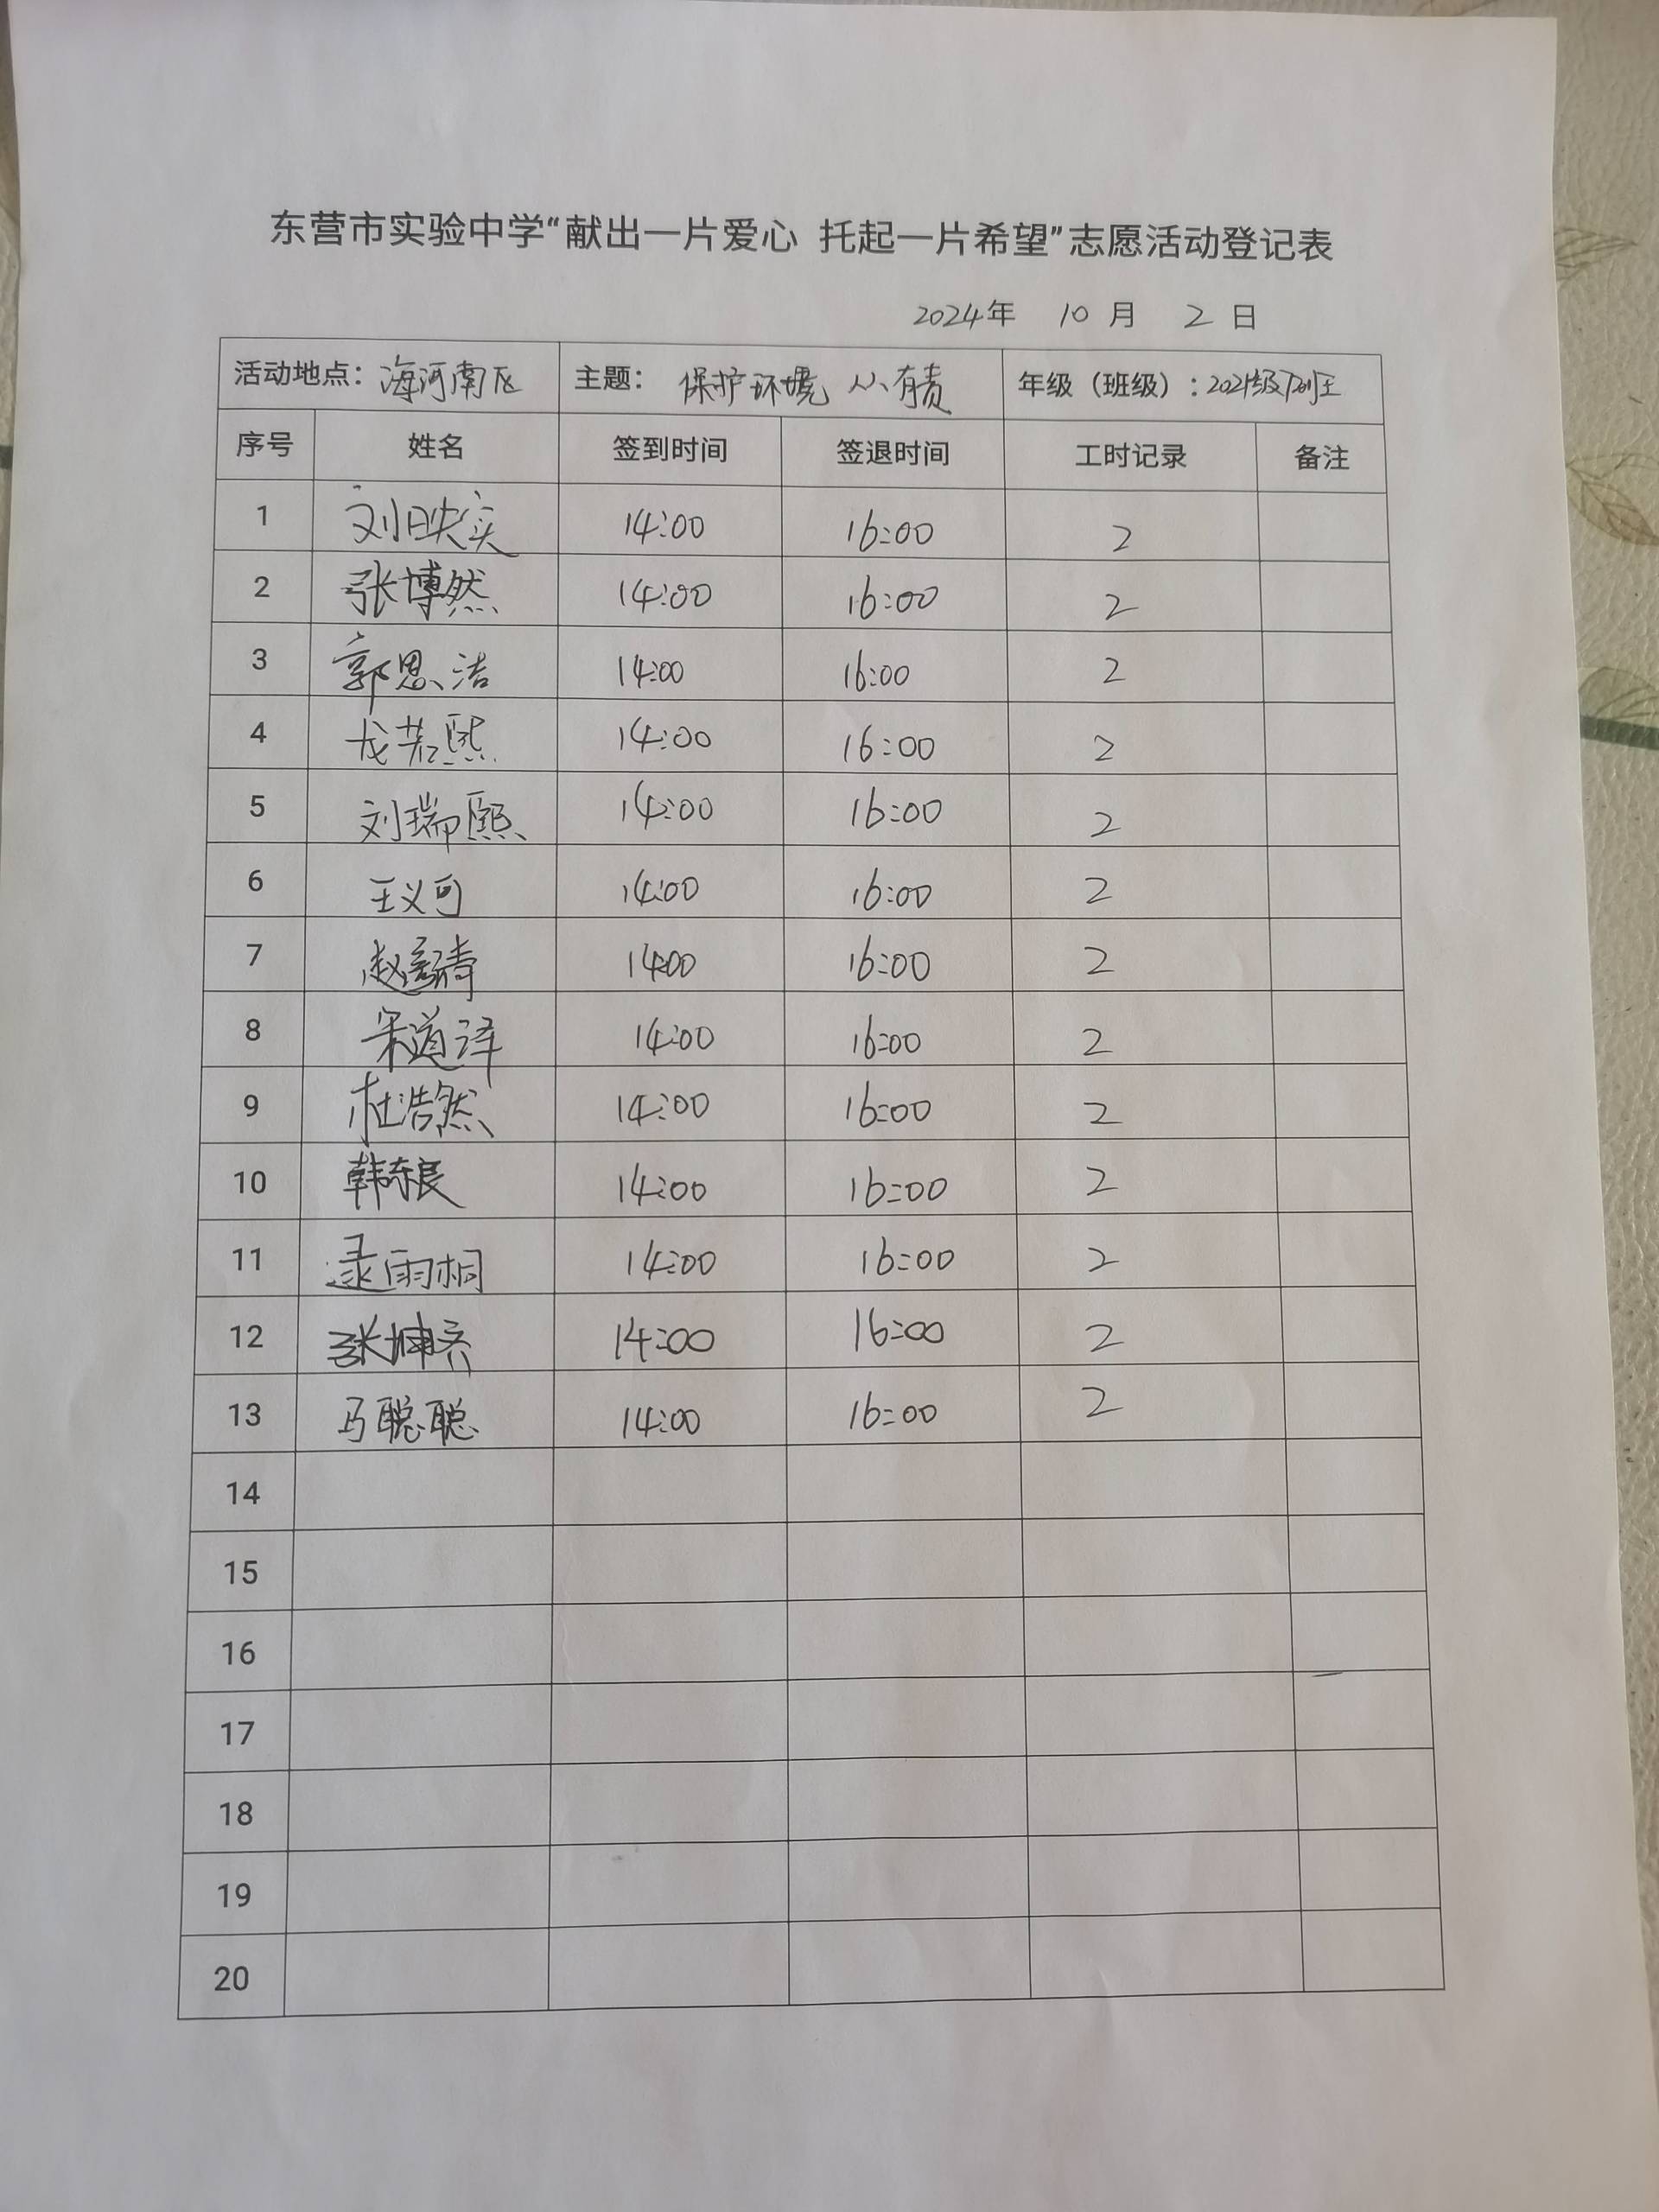 东营市实验中学“献出一片爱心 托起一片希望”志愿活动登记表
2024年 10 月 2 日
活动地点：海河南区 主题：保护环境 人人有责 年级（班级）：2021级
序号 姓名 签到时间 签退时间 工时记录 备注
1 刘映实 14:00 16:00 2
2 张博然 14:00 16:00 2
3 郭恩洁 14:00 16:00 2
4 龙若熙 14:00 16:00 2
5 刘瑞熙 14:00 16:00 2
6 王义可 14:00 16:00 2
7 赵 14:00 16:00 2
8 宋道泽 14:00 16:00 2
9 杜浩然 14:00 16:00 2
10 韩东良 14:00 16:00 2
11 逯雨桐 14:00 16:00 2
12 张坤 14:00 16:00 2
13 马聪聪 14:00 16:00 2
14
15
16
17
18
19
20